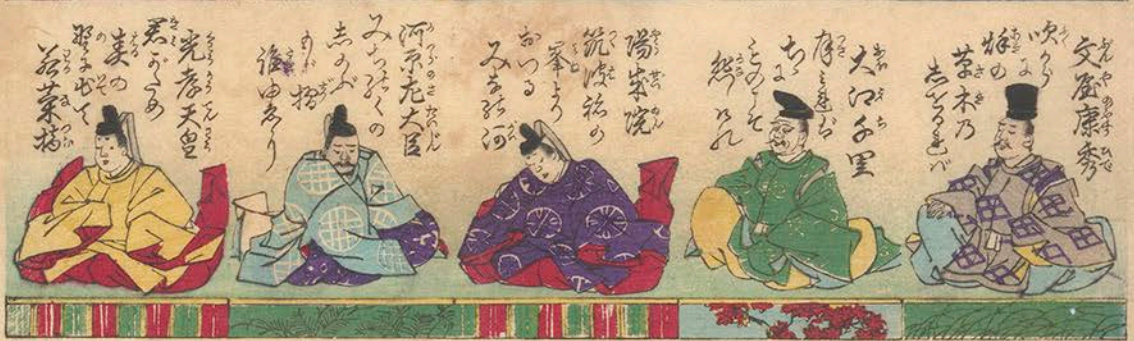 文屋康秀
吹からに
秋の
草木乃
しをるれば
大江千里
月みれば
ちゞに
ものこそ
悲けれ
陽成院
筑波祢の
峯より
おつる
みな能河
河原左大臣
みちのくの
志のぶ
もぢ摺
誰ゆゑに
光孝天皇
君がため
春の
野に出て
若菜摘